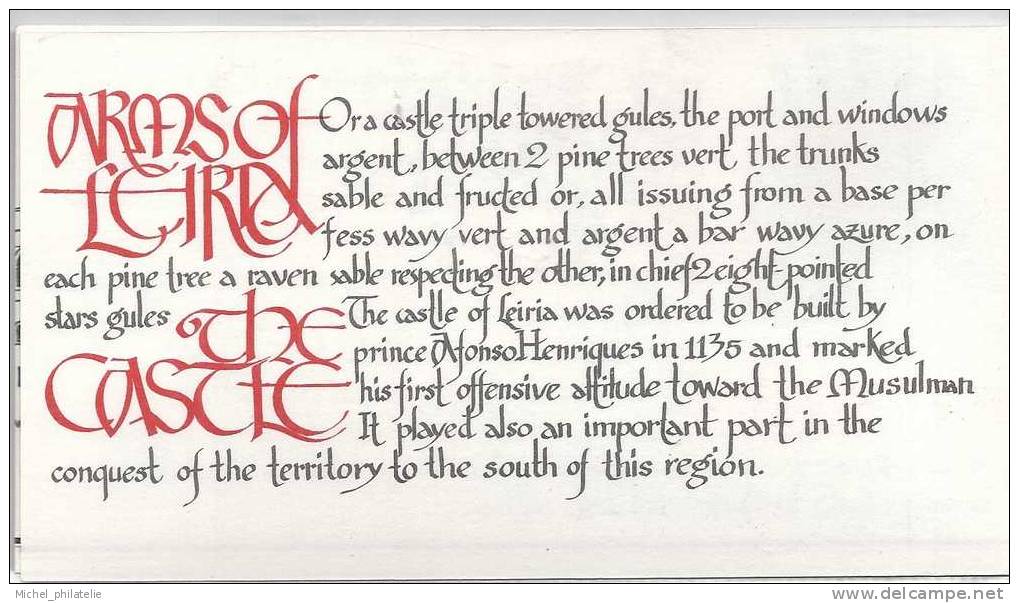 ARMS OF
LEIRIA
Or a castle triple towered gules, the port and windows
argent, between 2 pine trees vert the trunks
sable and fructed or, all issuing from a base per
fess wavy vert and argent a bar wavy azure, on
each pine tree a raven sable respecting the other, in chief 2 eight-pointed
stars gules
The
CASTLE
The castle of Leiria was ordered to be built by
prince Afonso Henriques in 1135 and marked
his first offensive attitude toward the Musulman
It played also an important part in the
conquest of the territory to the south of this region.
Michel_philatelie
delcampe.net